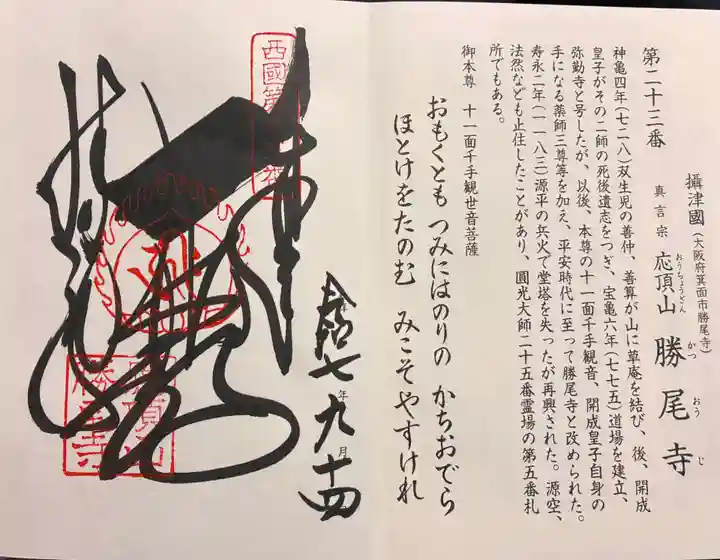 第二十三番
攝津國(大阪府箕面市勝尾寺)
真言宗 応頂山 勝尾寺
おうちょうざん かつおうじ
神亀四年(七二八)双生児の善仲、善算が山に草庵を結び、後、開成
皇子がその二師の死後遺志をつぎ、宝亀六年(七七五)道場を建立、
弥勒寺と号したが、以後、本尊の十一面千手観音、開成皇子自身の
手になる薬師三尊等を加え、平安時代に至って勝尾寺と改められた。
寿永二年(一一八三)源平の兵火で堂塔を失ったが再興された。源空、
法然なども止住したことがあり、圓光大師二十五番霊場の第五番札
所でもある。
御本尊 十一面千手観世音菩薩
おもくとも つみにはのりの かちおでら
ほとけをたのむ みこそやすけれ
七年九月十四
西國第
勝尾寺